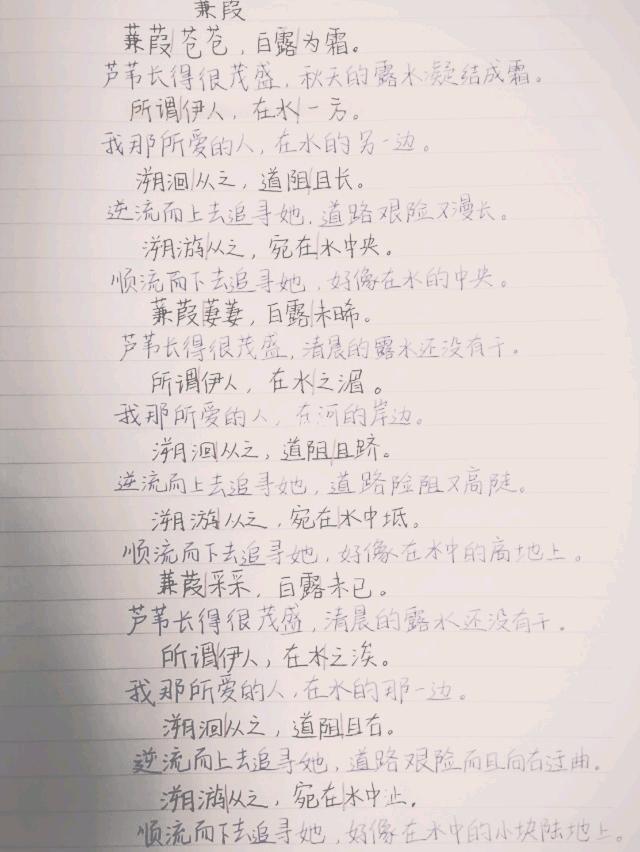 蒹葭
蒹葭|苍苍，白露|为霜。
芦苇长得很茂盛，秋天的露水凝结成霜。
所谓|伊人，在水|一方。
我那所爱的人，在水的另一边。
溯洄|从之，道阻|且长。
逆流而上去追寻她，道路艰险又漫长。
溯游|从之，宛在|水中央。
顺流而下去追寻她，好像在水的中央。
蒹葭|萋萋，白露|未晞。
芦苇长得很茂盛，清晨的露水还没有干。
所谓|伊人，在水|之湄。
我那所爱的人，在河的岸边。
溯洄|从之，道阻|且跻。
逆流而上去追寻她，道路险阻又高陡。
溯游|从之，宛在|水中坻。
顺流而下去追寻她，好像在水中的高地上。
蒹葭|采采，白露|未已。
芦苇长得很茂盛，清晨的露水还没有干。
所谓|伊人，在水|之涘。
我那所爱的人，在水的那一边。
溯洄|从之，道阻|且右。
逆流而上去追寻她，道路艰险而且向右迂曲。
溯游|从之，宛在|水中沚。
顺流而下去追寻她，好像在水中的小块陆地上。